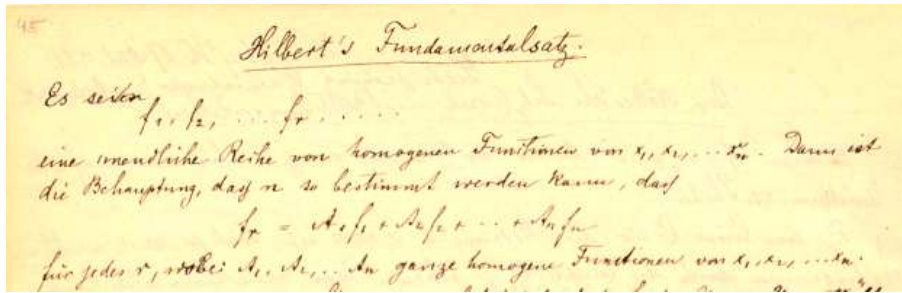 45
Hilbert's Fundamentalsatz.
Es seien
f₁, f₂, ... fᵣ .....
eine unendliche Reihe von homogenen Functionen von x₁, x₂, ... xₙ. Dann ist
die Behauptung, daß n so bestimmt werden kann, daß
fᵣ = A₁f₁ + A₂f₂ + ... + Aₙfₙ
für jedes r, wobei A₁, A₂, .. Aₙ ganze homogene Functionen von x₁, x₂, ... xₙ.